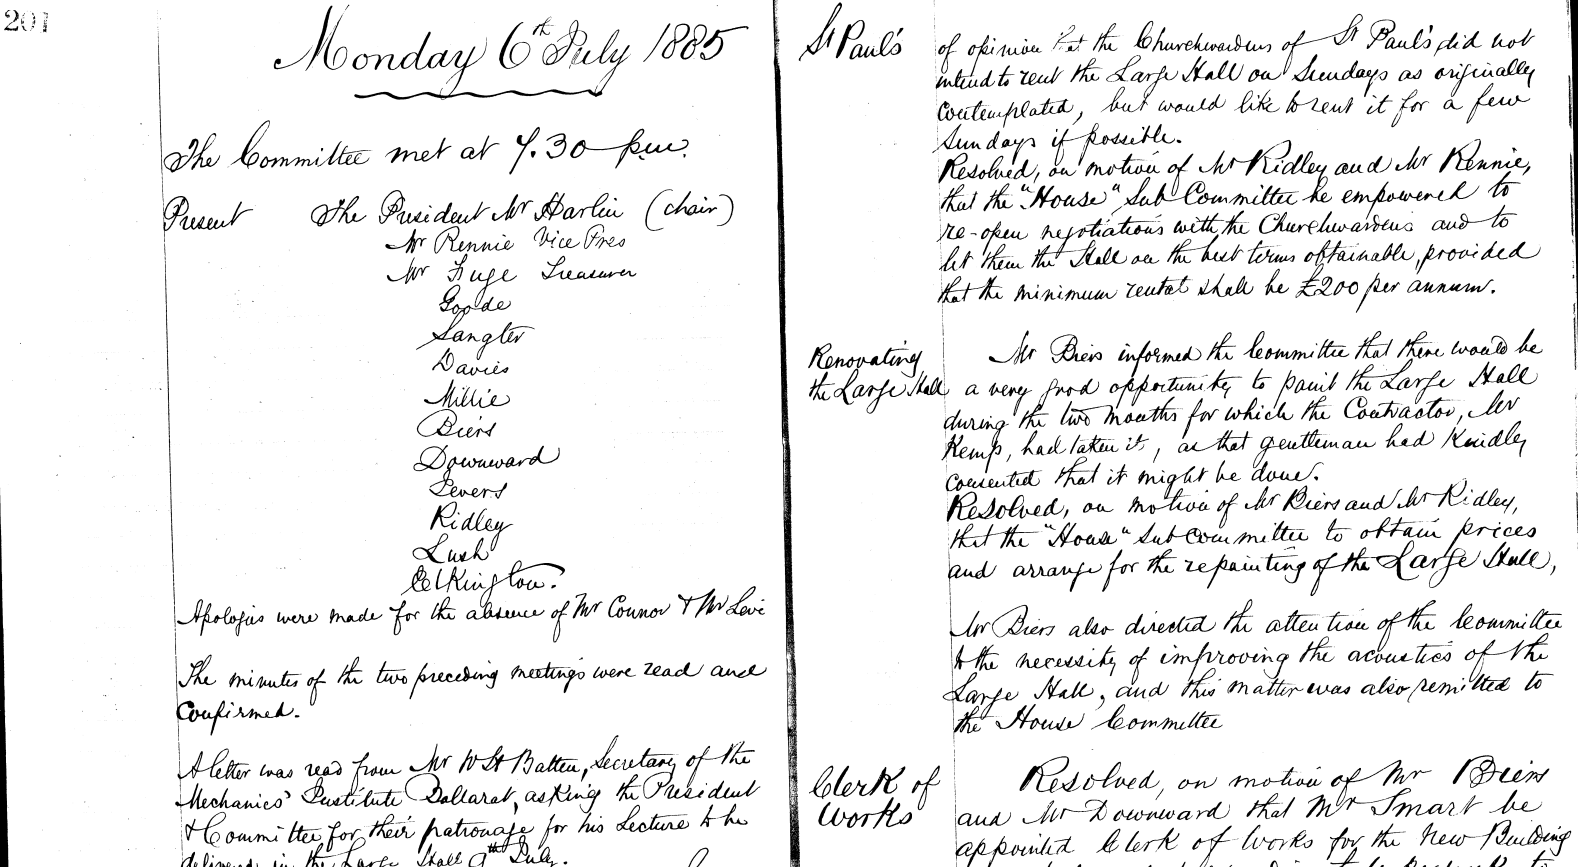 201
Monday 6th July 1885
The Committee met at 7.30 p.m.
Present The President Mr Harlin (chair)
Mr Rennie Vice Pres
Mr Fuge Treasurer
Goode
Sangster
Davies
Millie
Biers
Downward
Levers
Ridley
Lush
Elkington.
Apologies were made for the absence of Mr Connor & Mr Levi
The minutes of the two preceding meetings were read and
Confirmed.
A letter was read from Mr W St Batten, Secretary of the
Mechanics' Institute Ballarat, asking the President
& Committee for their patronage for his Lecture to be
delivered in the Large Hall 9th July.
St Paul's
of opinion that the Churchwardens of St Paul's did not
intend to rent the Large Hall on Sundays as originally
Contemplated, but would like to rent it for a few
Sundays if possible.
Resolved, on motion of Mr Ridley and Mr Rennie,
that the "House" Sub Committee be empowered to
re-open negotiations with the Churchwardens and to
let them the Hall on the best terms obtainable, provided
that the minimum rental shall be £200 per annum.
Renovating
the Large Hall
Mr Biers informed the Committee that there would be
a very good opportunity to paint the Large Hall
during the two months for which the Contractor, Mr
Kemp, had taken it, as that gentleman had Kindly
consented that it might be done.
Resolved, on motion of Mr Biers and Mr Ridley,
that the "House" Sub Committee to obtain prices
and arrange for the repainting of the Large Hall,
Mr Biers also directed the attention of the Committee
to the necessity of improving the acoustics of the
Large Hall, and this matter was also remitted to
the House Committee
Clerk of
Works
Resolved, on motion of Mr Biers
and Mr Downward that Mr Smart be
appointed Clerk of Works for the New Building